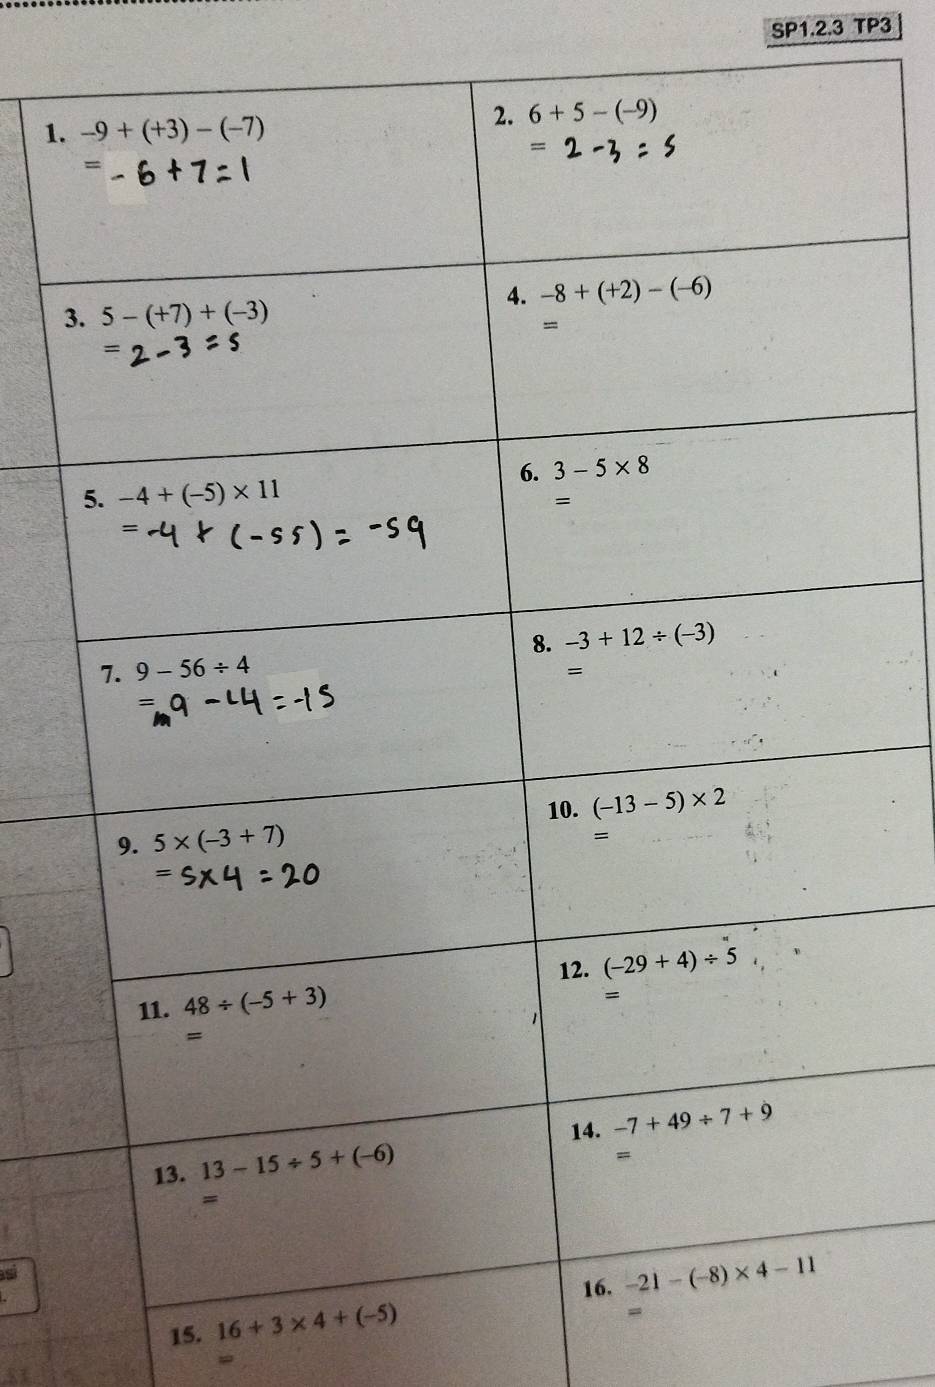 SP1.2.3 TP3
1. –9 + (+3) – (–7)
= - 6 + 7 = 1
2. 6 + 5 – (–9)
= 2 - 3 = 5
3. 5 – (+7) + (–3)
= 2 - 3 = 5
4. –8 + (+2) – (–6)
=
5. –4 + (–5) × 11
= -4 + (-55) = -59
6. 3 – 5 × 8
=
7. 9 – 56 ÷ 4
= 9 - 14 = -15
8. –3 + 12 ÷ (–3)
=
9. 5 × (–3 + 7)
= 5 x 4 = 20
10. (–13 – 5) × 2
=
11. 48 ÷ (–5 + 3)
=
12. (–29 + 4) ÷ 5
=
13. 13 – 15 ÷ 5 + (–6)
=
14. –7 + 49 ÷ 7 + 9
=
15. 16 + 3 × 4 + (–5)
=
16. –21 – (–8) × 4 – 11
=